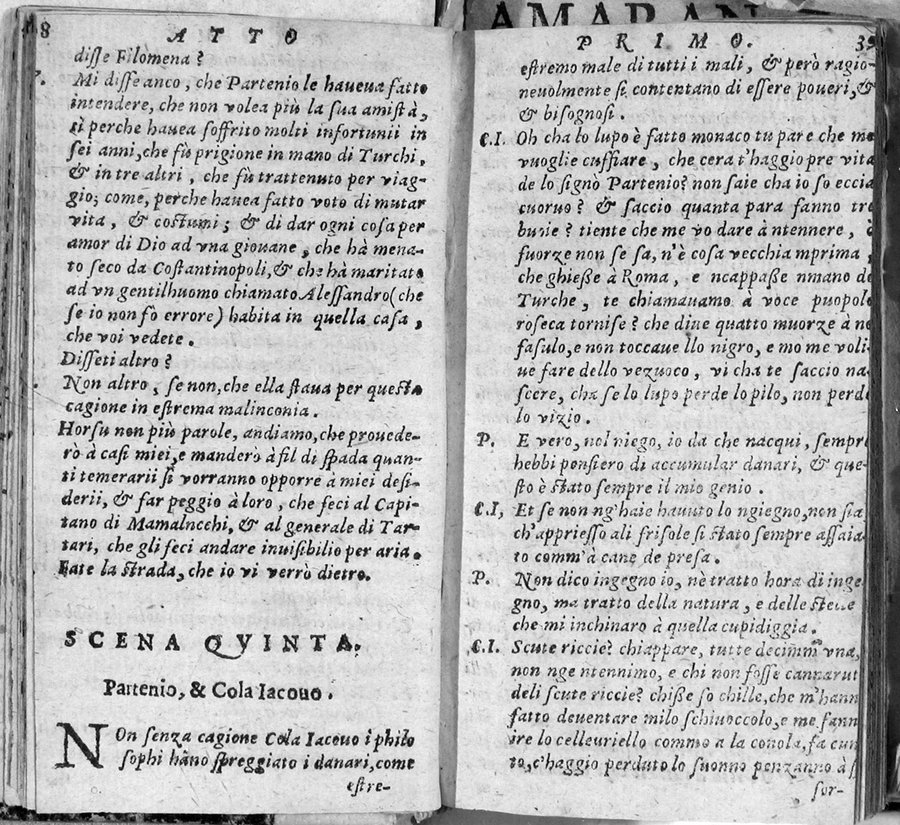 AMARAN
8
ATTO
disse Filomena?
Mi disse anco, che Partenio le haueua fatto
intendere, che non volea più la sua amistà,
sì perche hauea soffrito molti infortunii in
sei anni, che fù prigione in mano di Turchi,
& in tre altri, che fù trattenuto per viag-
gio; come, perche hauea fatto voto di mutar
vita, & costumi; & di dar ogni cosa per
amor di Dio ad vna giouane, che hà mena-
to seco da Costantinopoli, & che hà maritato
ad vn gentilhuomo chiamato Alessandro (che
se io non fò errore) habita in quella casa,
che voi vedete.
Disseti altro?
Non altro, se non, che ella staua per questa
cagione in estrema malinconia.
Horsu non più parole, andiamo, che prouede-
rò à casi miei, e manderò à fil di spada quan-
ti temerarii si vorranno opporre à miei desi-
derii, & far peggio à loro, che feci al Capi-
tano di Mamalncchi, & al generale di Tar-
tari, che gli feci andare inuisibilio per aria.
Fate la strada, che io vi verrò dietro.
SCENA QVINTA.
Partenio, & Cola Iacouo.
NOn senza cagione Cola Iacouo i philo
sophi hāno spreggiato i danari, come
estre-
PRIMO.
39
estremo male di tutti i mali, & però ragio-
neuolmente si contentano di essere poueri, &
& bisognosi.
C.I. Oh cha lo lupo è fatto monaco tu pare che me
vuoglie cuffiare, che cera t'haggio pre vita
de lo signò Partenio? non saie cha io so eccia
cuoruo? & saccio quanta para fanno tre
buoie? tiente che me vo dare à ntennere,
fuorze non se sa, n'è cosa vecchia mprima,
che ghiesse à Roma, e ncappasse nmano de
Turche, te chiamauamo à voce puopolo
roseca tornise? che diue quatto muorze à no
fasulo, e non toccaue llo nigro, e mò me voli-
ue fare dello vezuoco, vi cha te saccio na-
scere, cha se lo lupo perde lo pilo, non perde
lo vizio.
P. E vero, nol niego, io da che nacqui, sempre
hebbi pensiero di accumular danari, & que-
sto è stato sempre il mio genio.
C.I, Et se non ng'haie hauuto lo ngiegno, non sia
ch'appriesso ali frisole si stato sempre assaia
to comm'à cane de presa.
P. Non dico ingegno io, nè tratto hora di inge
gno, ma tratto della natura, e delle stelle
che mi inchinaro à quella cupidiggia.
C.I. Scute riccie? chiappare, tutte decimm' vna,
non nge ntennimo, e chi non fosse cannarut
deli scute riccie? chisse so chille, che m'hann
fatto deuentare milo schiuoccolo, e me fann
ire lo celleuriello commo a la conola, fa cun
to, c'haggio perduto lo suonno penzanno à
sor-